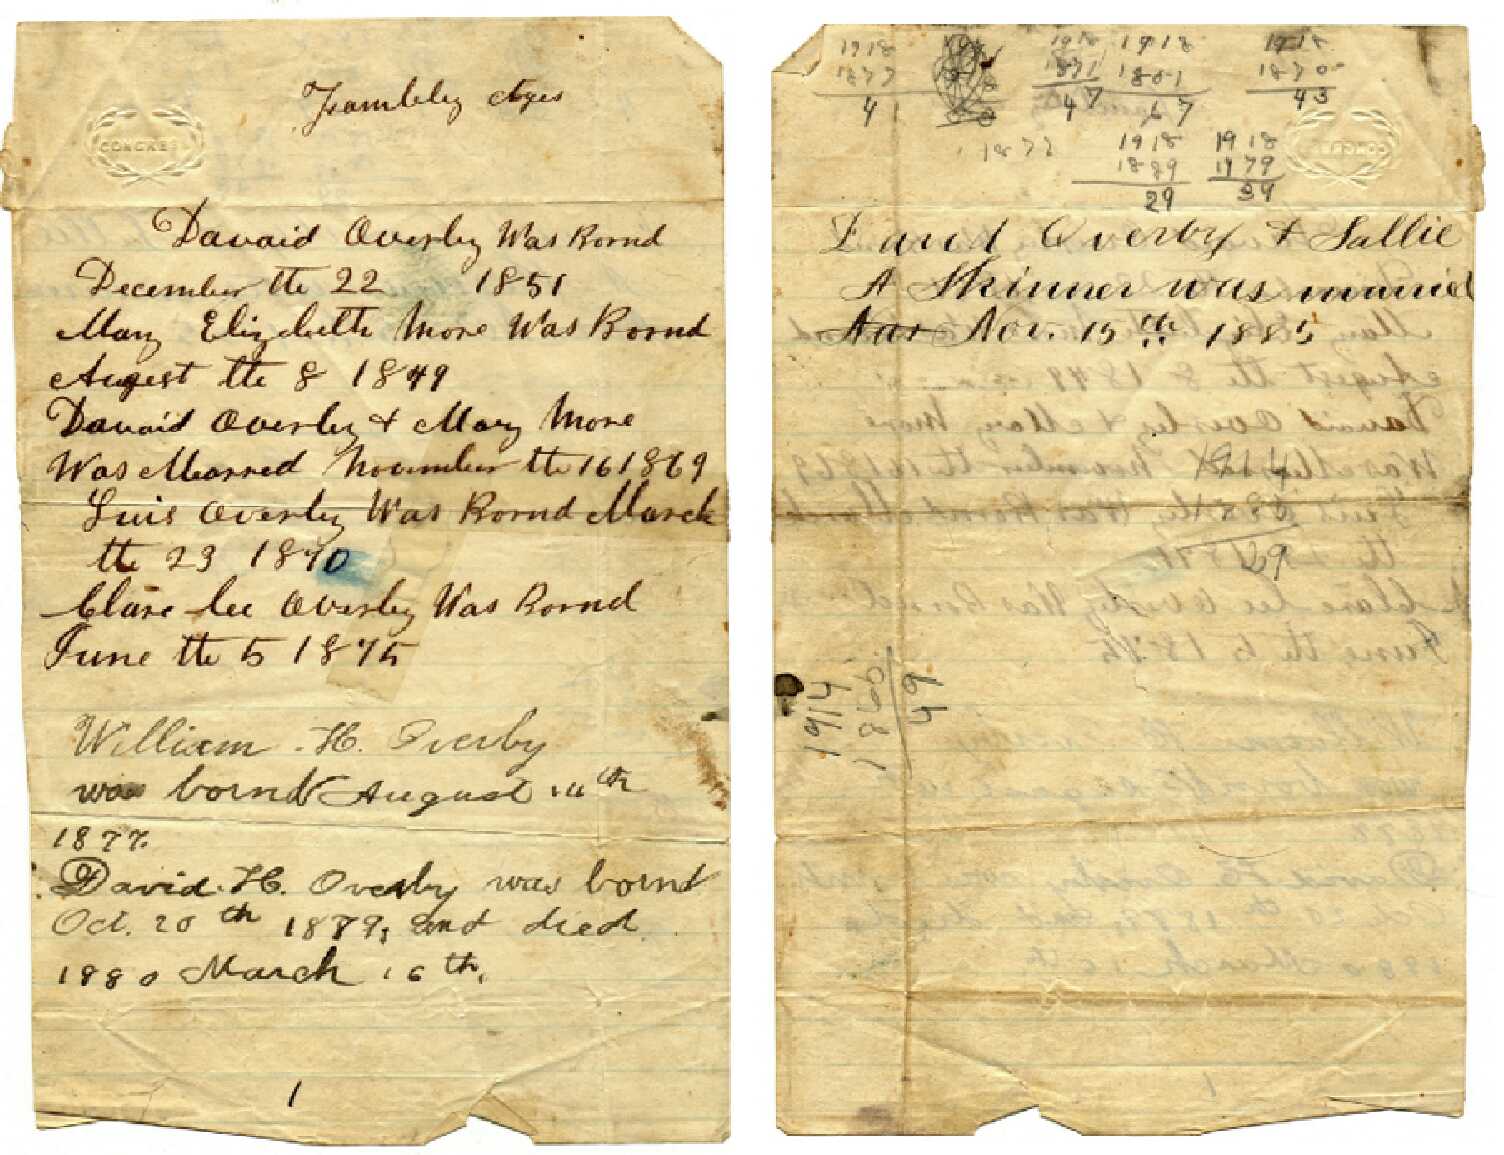 Fambley Ages
CONGRESS
Davaid Overby Was Bornd
December the 22 1851
Mary Elizebeth More Was Bornd
August the 8 1849
Davaid Overby & Mary More
Was Marred November the 16 1869
Luis Overby Was Bornd March
the 23 1870
Clare Lee Overby Was Bornd
June the 5 1875
William H. Overby
was bornd August
1877.
David H. Overby was bornd
Oct. 20th 1879, and died
1880 March 16th.
1
1918 1918 1918 1918
1877 1871 1851 1870
41 47 67 43
1877
1918 1918
1889 1879
29 39
David Overby & Sallie
A Skinner was married
Nov. 15th 1885
1914
29
1914
1865
49